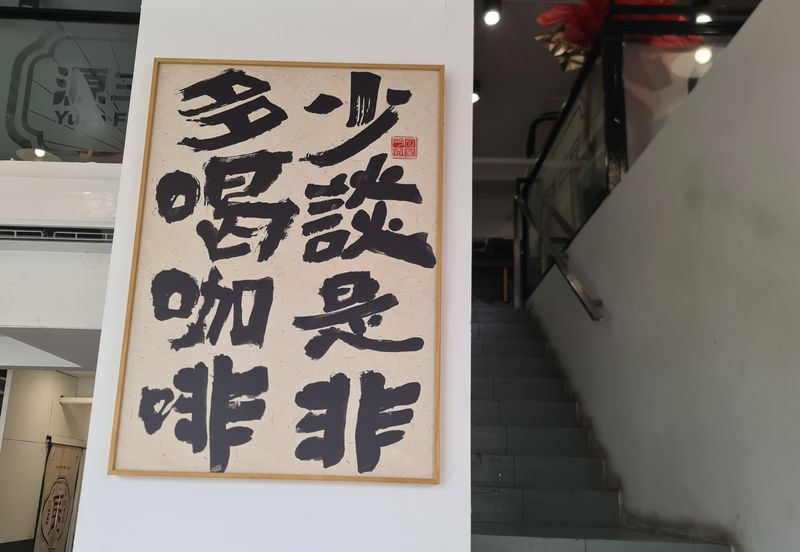 少談是非
多喝咖啡
源